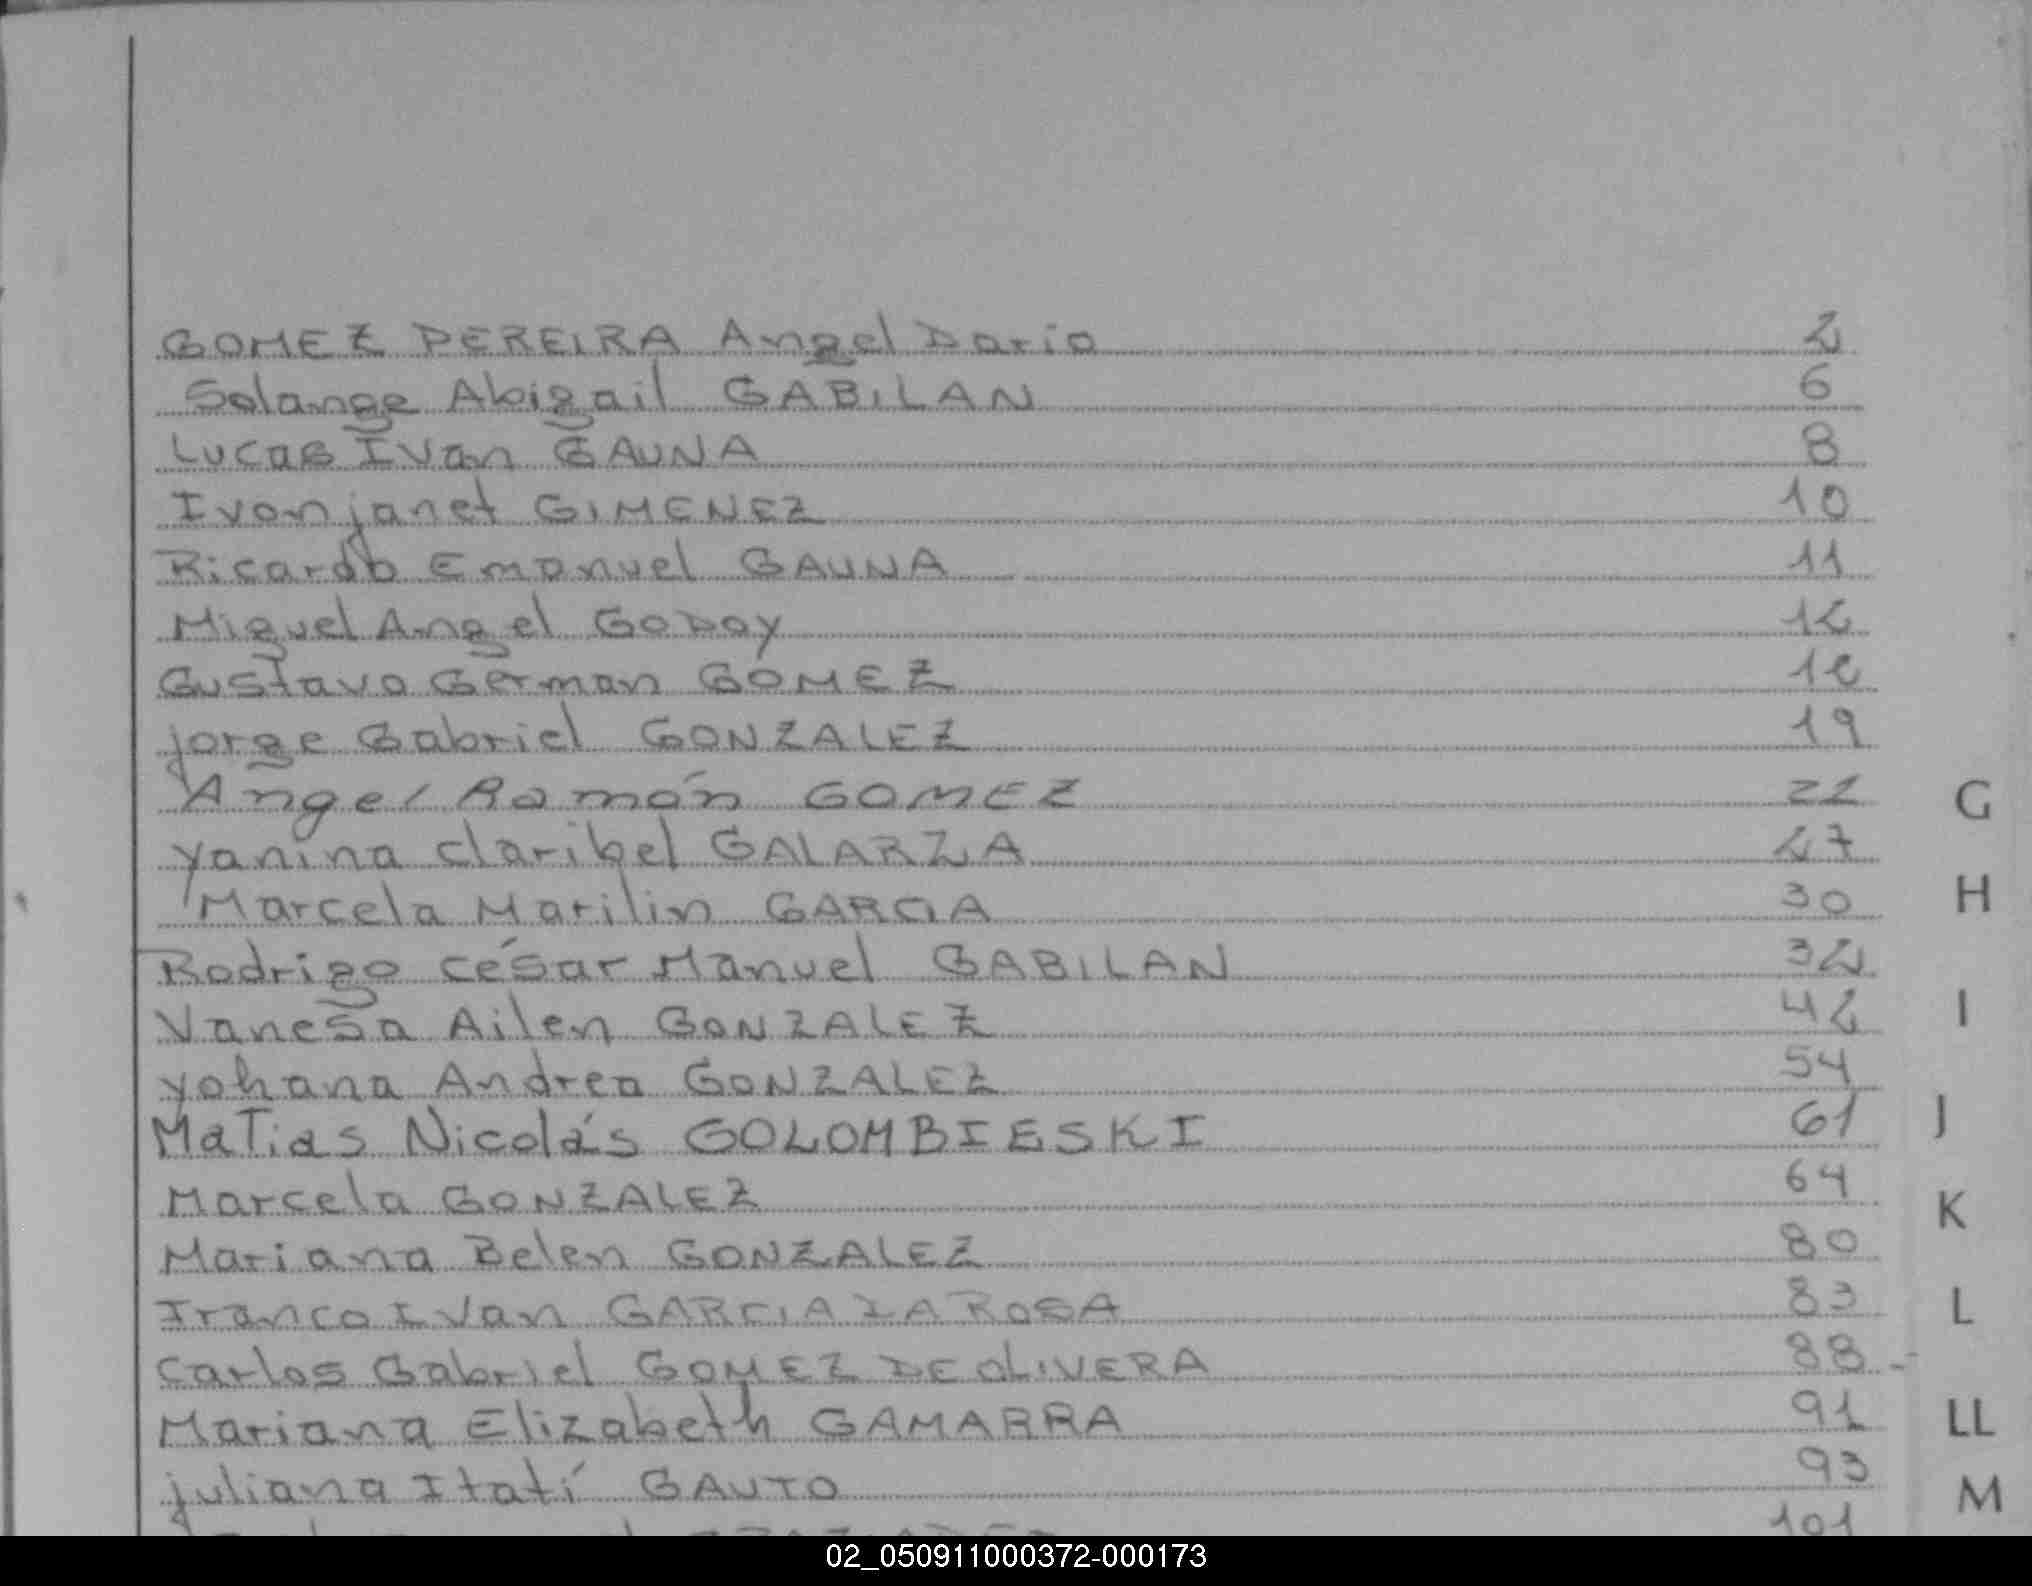 GOMEZ PEREIRA Angel Dario 2
Solange Abigail GABILAN 6
Lucas Ivan GAUNA 8
Ivon janet GIMENEZ 10
Ricardo Emanuel GAUNA 11
Miguel Angel GODOY 12
Gustavo German GOMEZ
jorge Gabriel GONZALEZ 19
Angel Ramón GOMEZ 21
G
yanina claribel GALARZA 27
Marcela Marilin GARCIA 30
H
Rodrigo césar Manuel GABILAN 32
Vanesa Ailen GONZALEZ 42
I
yohana Andrea GONZALEZ 54
Matias Nicolás GOLOMBIESKI 61
J
Marcela GONZALEZ 64
K
Mariana Belen GONZALEZ 80
Franco Ivan GARCIA LA ROSA 83
L
Carlos Gabriel GOMEZ DE OLIVERA 88
Mariana Elizabeth GAMARRA 91
LL
juliana Itatí GAUTO 93
M
101
02_050911000372-000173